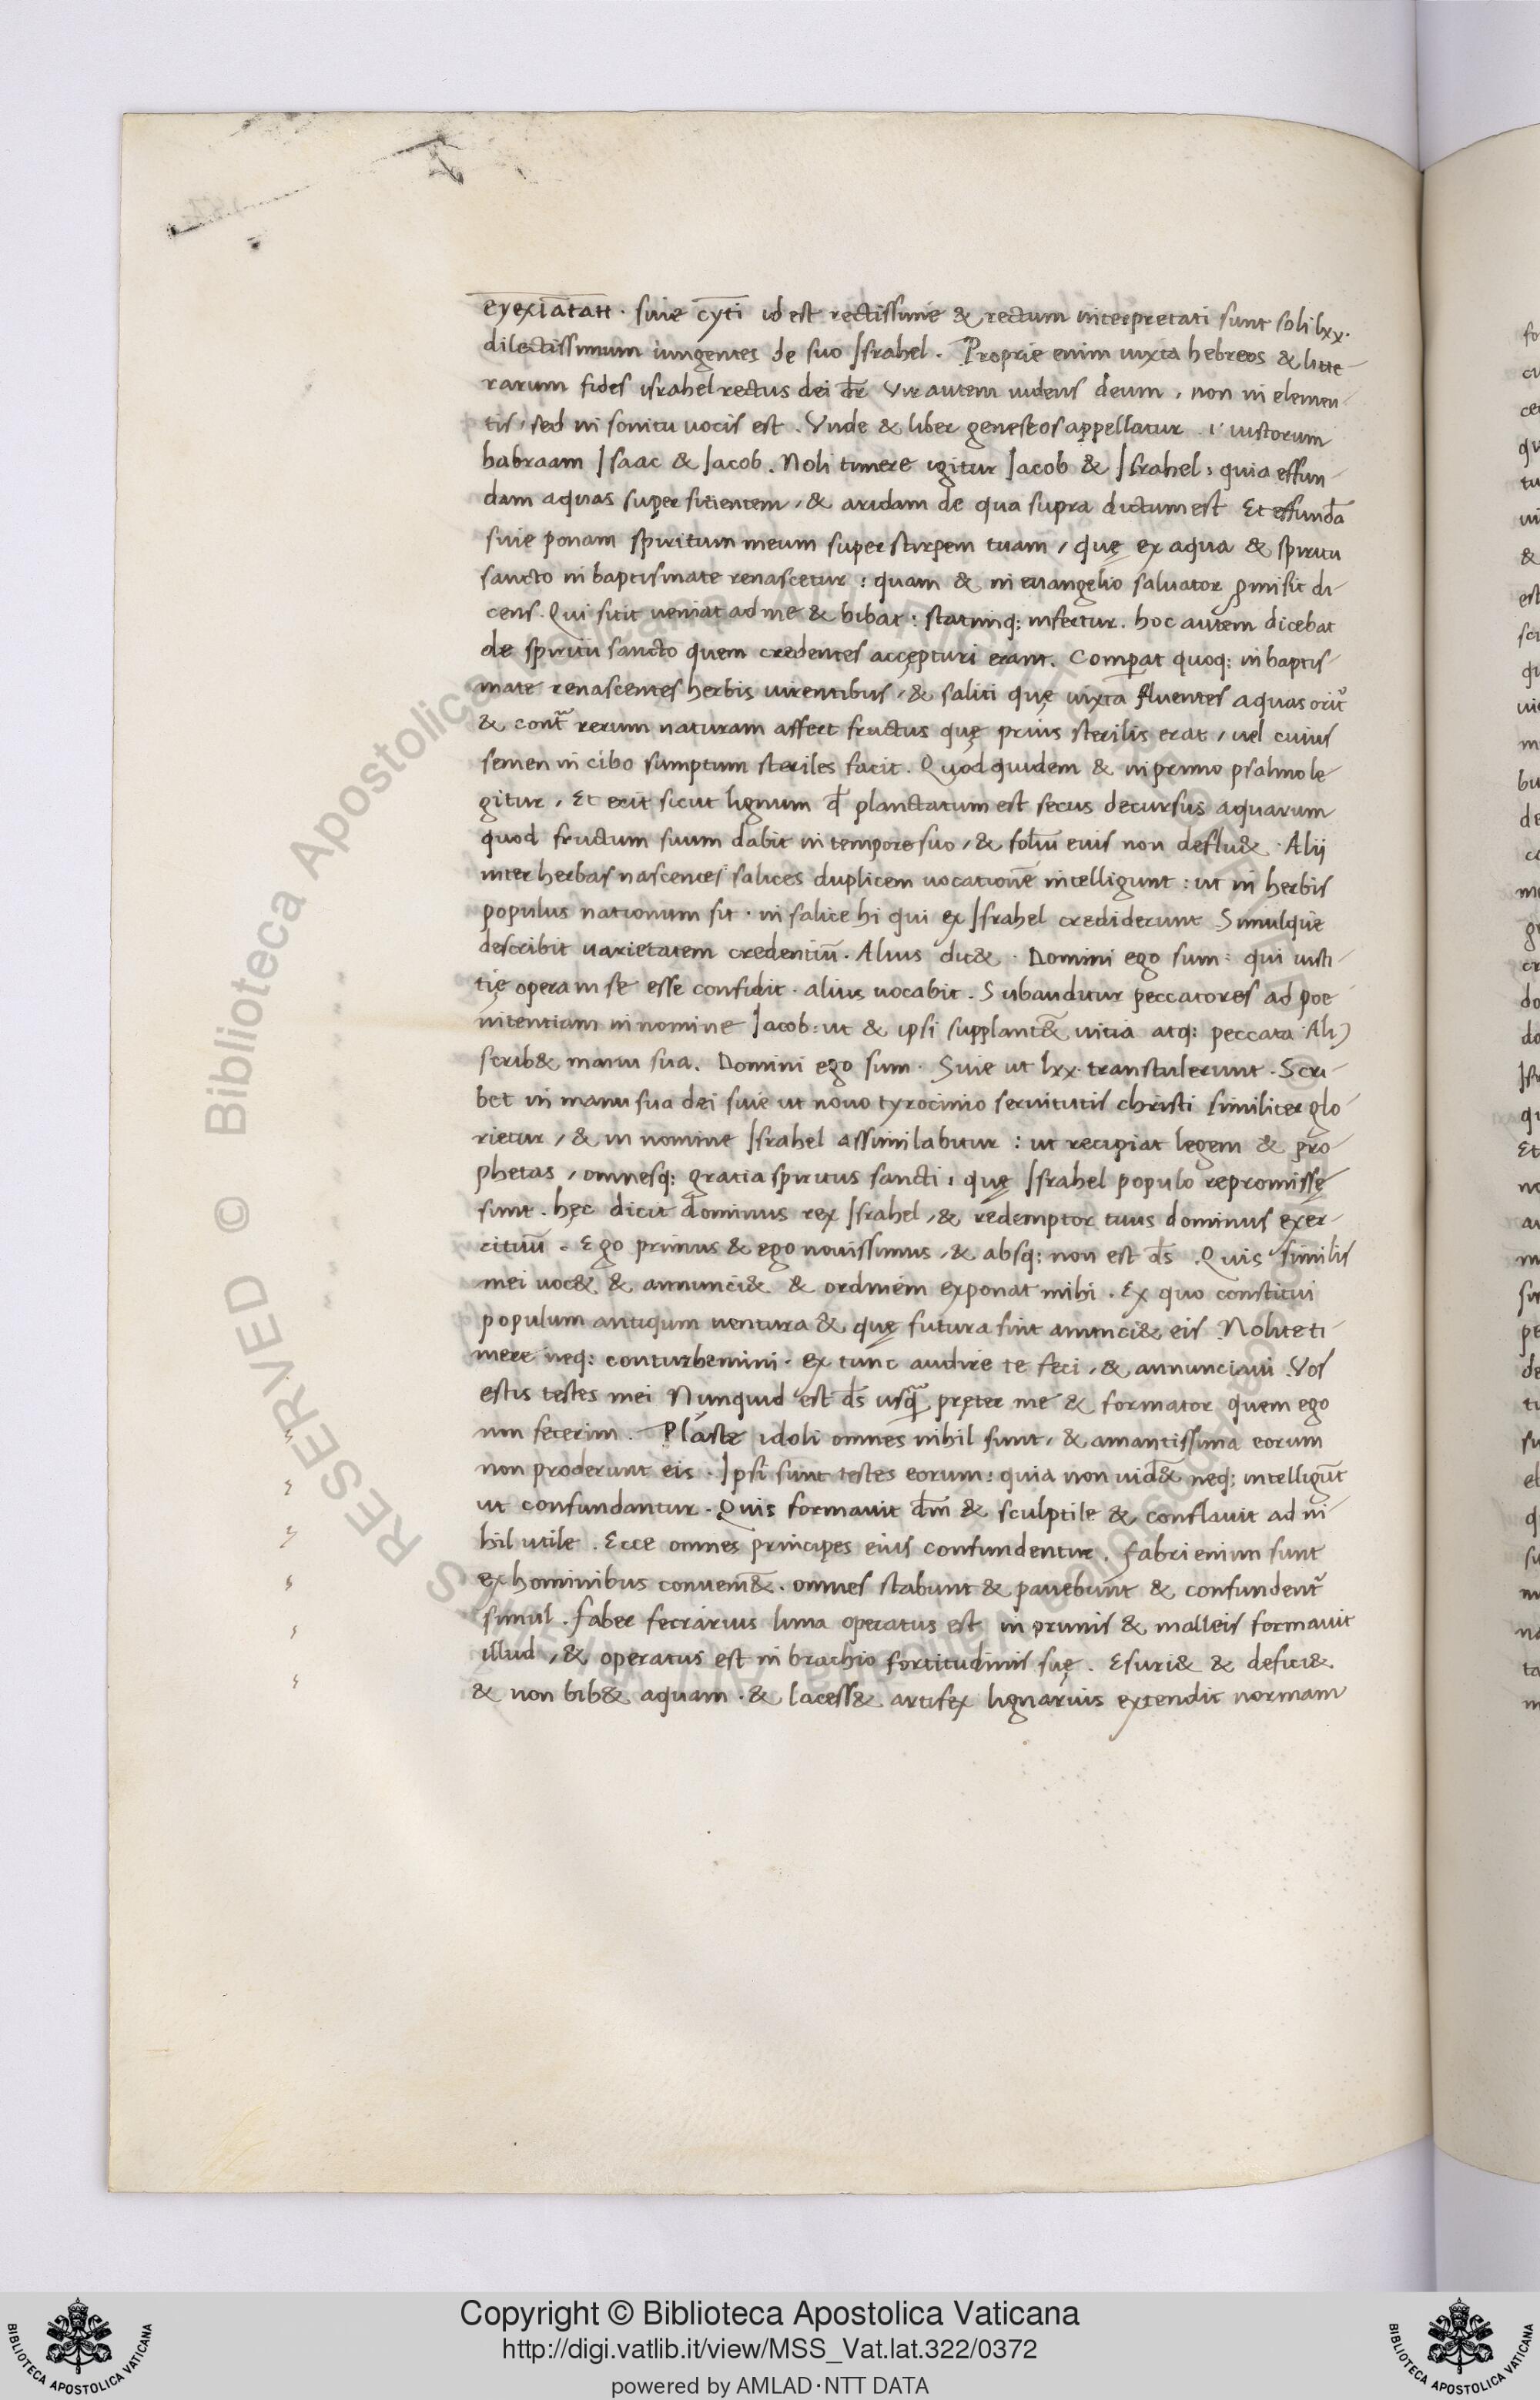 eyexiatatt · siue cyti id est rectissime & rectum interpretati sunt soli lxx·
dilectissimum iungentes de suo Israhel . Proprie enim iuxta hebreos & litte-
rarum fides israhel rectus dei dr̄ Vir autem uidens deum , non in elemen-
tis , sed in sonitu uocis est . Vnde & liber geneseos appellatur . iustorum
habraam Isaac & Jacob . Noli timere igitur Jacob & Israhel : quia effun-
dam aquas super sitientem , & aridam de qua supra dictum est Et effundā
siue ponam spiritum meum super stirpem tuam , quę ex aqua & spiritu
sancto in baptismate renascetur : quam & in euangelio saluator ꝓmisit di-
cens . Qui sitit ueniat ad me & bibat : statimq: infertur . hoc autem dicebat
de spiritu sancto quem credentes accępturi erant . Comꝑat quoq: in baptis-
mate renascentes herbis uirentibus , & saliti quę iuxta fluentes aquas orit᷑
& cont᷑ rerum naturam affert fructus quę prius sterilis erat , uel cuius
semen in cibo sumptum steriles facit . Quod quidem & in primo psalmo le-
gitur , Et erit sicut lignum qđ planctatum est secus decursus aquarum
quod fructum suum dabit in tempore suo , & foliū eius non deflu& · Alij
inter herbas nascentes salices duplicem uocationē intelligunt : ut in herbis
populus nationum sit · in salice hi qui ex Israhel crediderunt Simulque
describit uarietatem credentiū . Alius dic& · Domini ego sum : qui iusti-
tię operam se esse confidit · alius uocabit . Subauditur peccatores ad poe-
nitentiam in nomine Jacob : ut & ipsi supplant& uitia atq: peccata Ali)
scrib& manu sua . Domini ego sum · Siue ut lxx· transtulerunt . Scri-
bet in manu sua dei siue ut nouo tyrocinio seruitutis christi similiter glo-
rietur , & in nomine Israhel assimilabitur : ut recipiat legem & pro-
phetas , omnesq: gratia spiritus sancti : quę Israhel populo repromissę
sunt . hęc dicit dominus rex Israhel , & redemptor tuus dominus exer-
cituū . Ego primus & ego nouissimus , & absq: non est ds̄ . Quis similis
mei uoc& & annunci& & ordinem exponat mihi . Ex quo constitui
populum antiqum uentura & quę futura sint anunci& eis Nolite ti-
mere neq: conturbemini . ex tunc audire te feci , & annunciaui . Vos
estis testes mei Nunquid est ds̄ usq᷑ pręter me & formator quem ego
non fecerim . Plaste idoli omnes nihil sunt , & amantissima eorum
non proderunt eis . Ipsi sunt testes eorum : quia non uid& neq: intelligūt
ut confundantur . Quis formauit dm̄ & sculptile & conflauit ad ni-
hil utile . Ecce omnes principes eius confundentur . fabri enim sunt
ex hominibus conueni& . omnes stabunt & pauebunt & confundent᷑
simul . faber ferrarius lima operatus est in prunis & malleis formauit
illud , & operatus est in brachio fortitudinis suę . Esuri& & defici&
& non bib& aquam . & lacess& artifex lignarius extendit normam
Copyright © Biblioteca Apostolica Vaticana
http://digi.vatlib.it/view/MSS_Vat.lat.322/0372
powered by AMLAD·NTT DATA